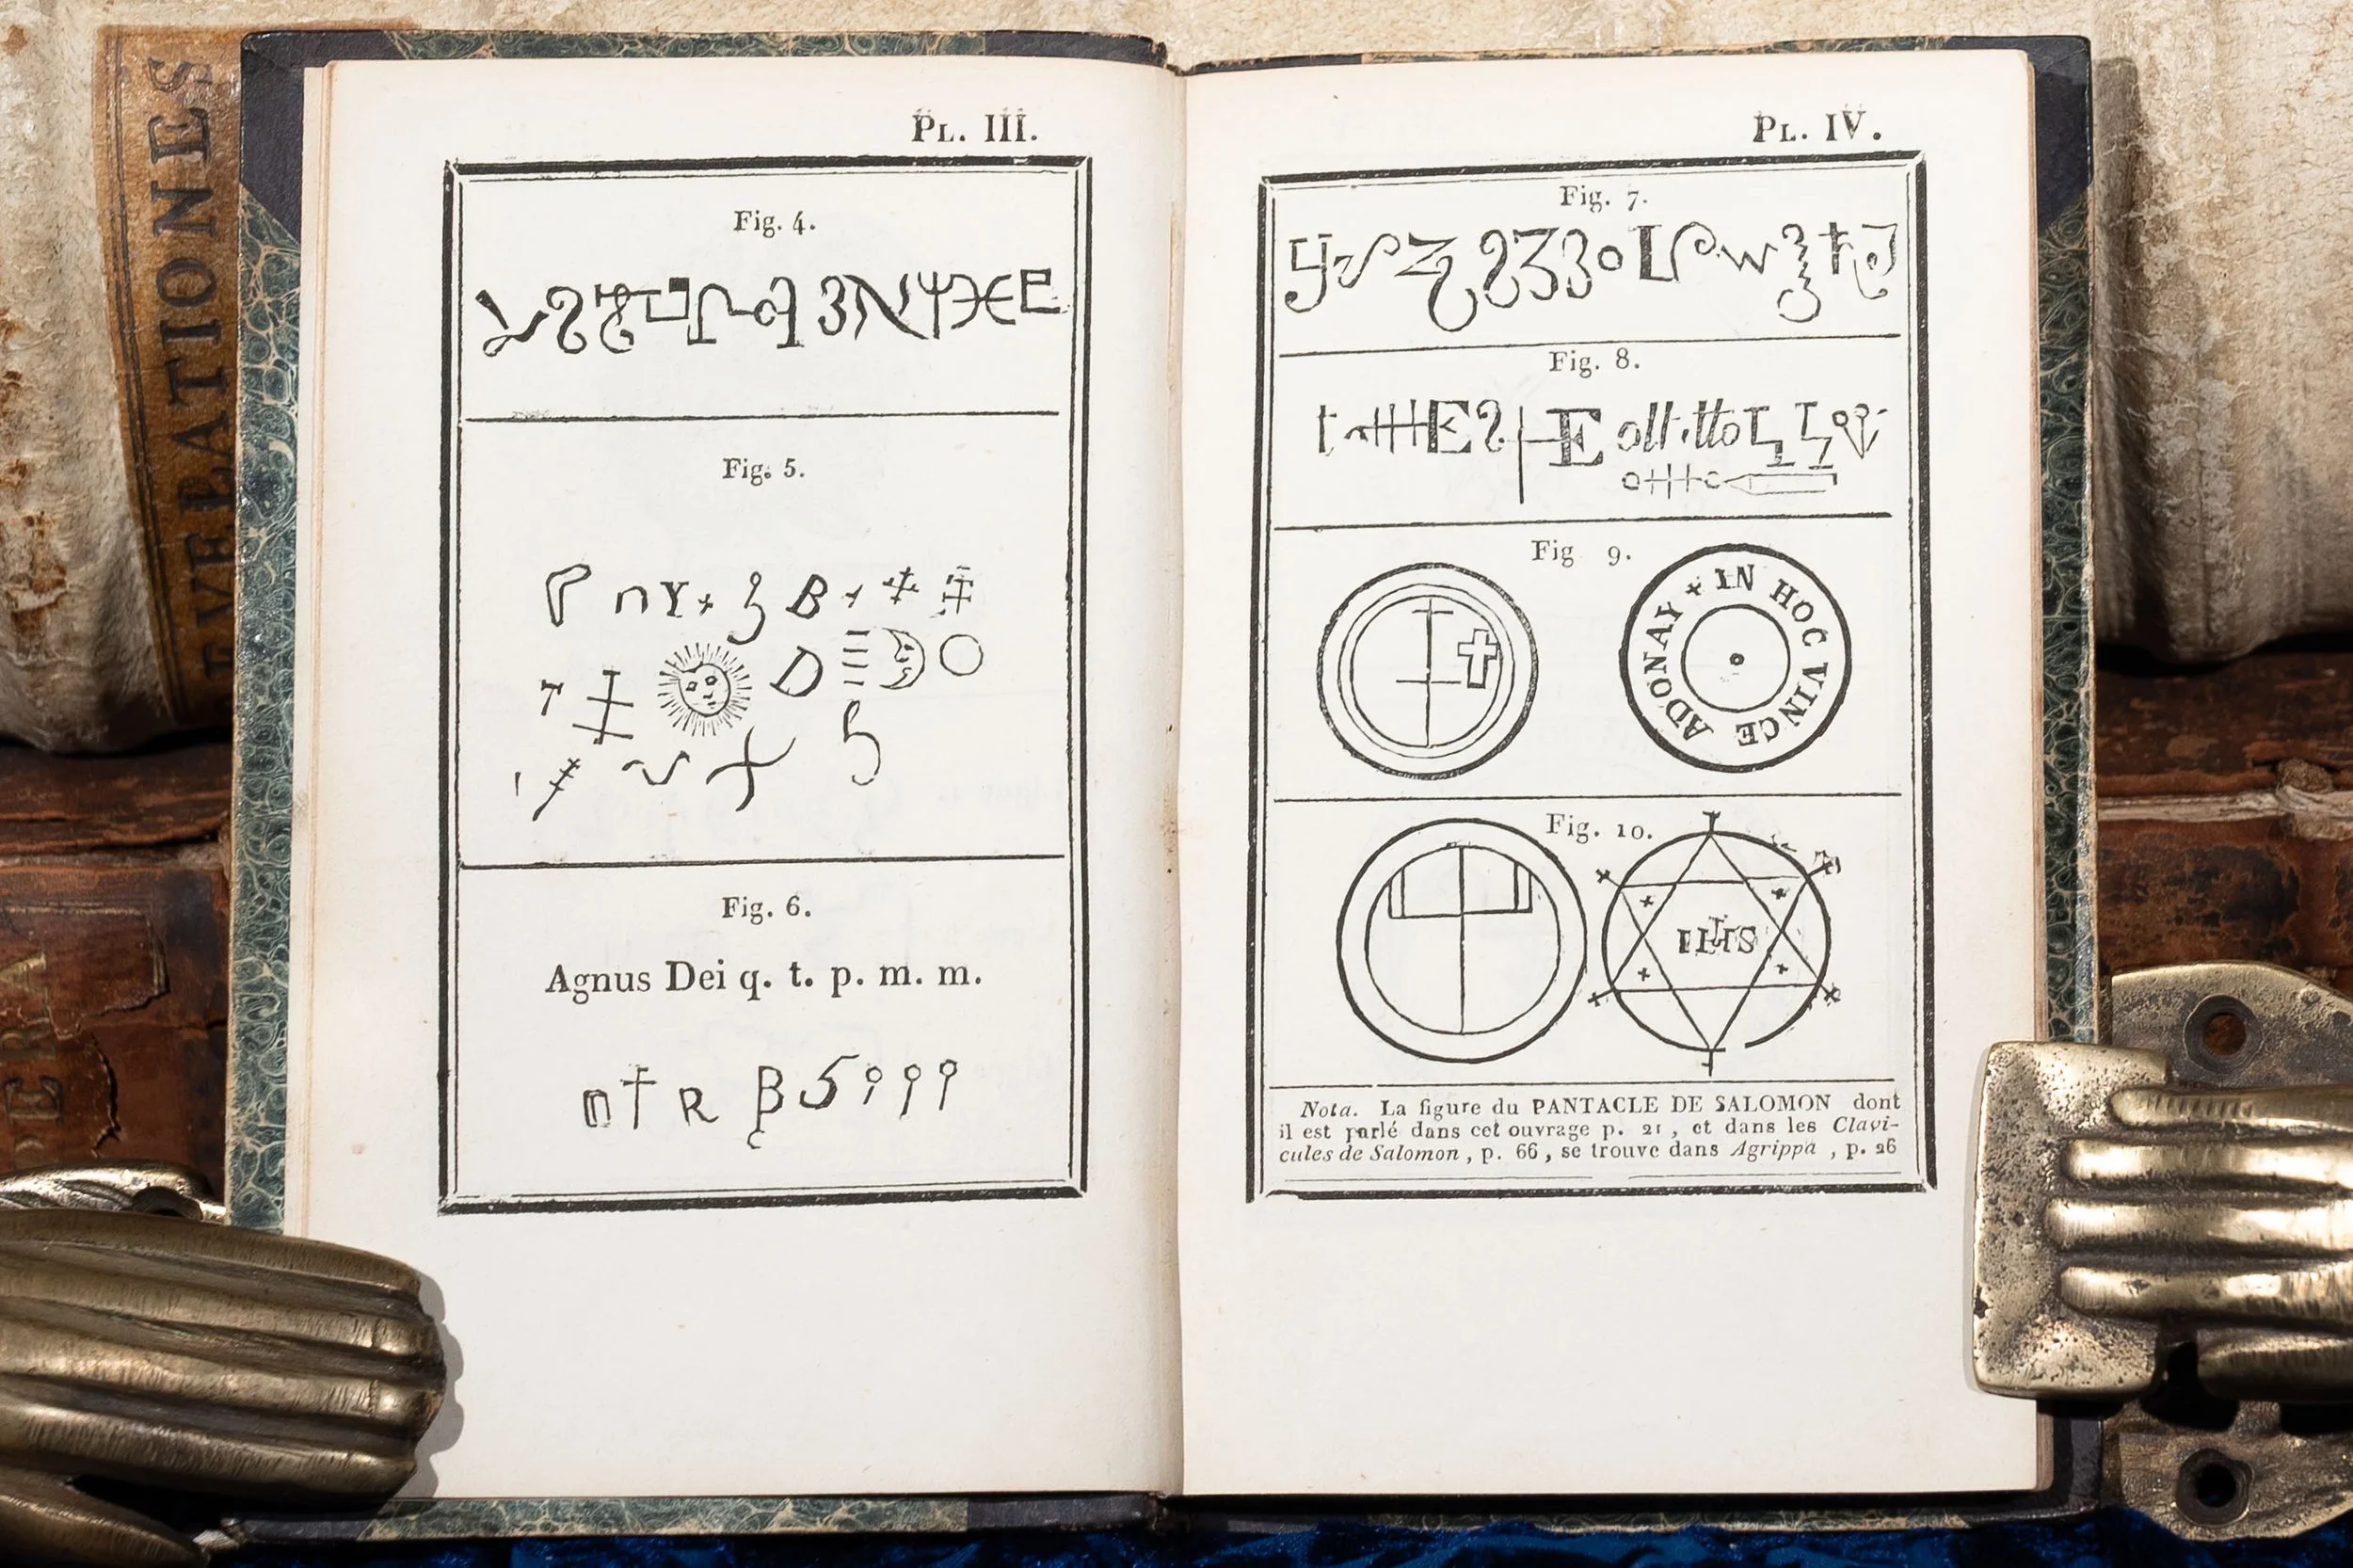 EVELATIONES
PERA
Pl. III.
Fig. 4.
Fig. 5.
Y
B
D
Fig. 6.
Agnus Dei q. t. p. m. m.
R
Pl. IV.
Fig. 7.
Fig. 8.
E
E
Fig 9.
+ IN HOC VINCE ADONAY
Fig. 10.
IHS
Nota. La figure du PANTACLE DE SALOMON dont
il est parlé dans cet ouvrage p. 21, et dans les Clavi-
cules de Salomon, p. 66, se trouve dans Agrippa, p. 26